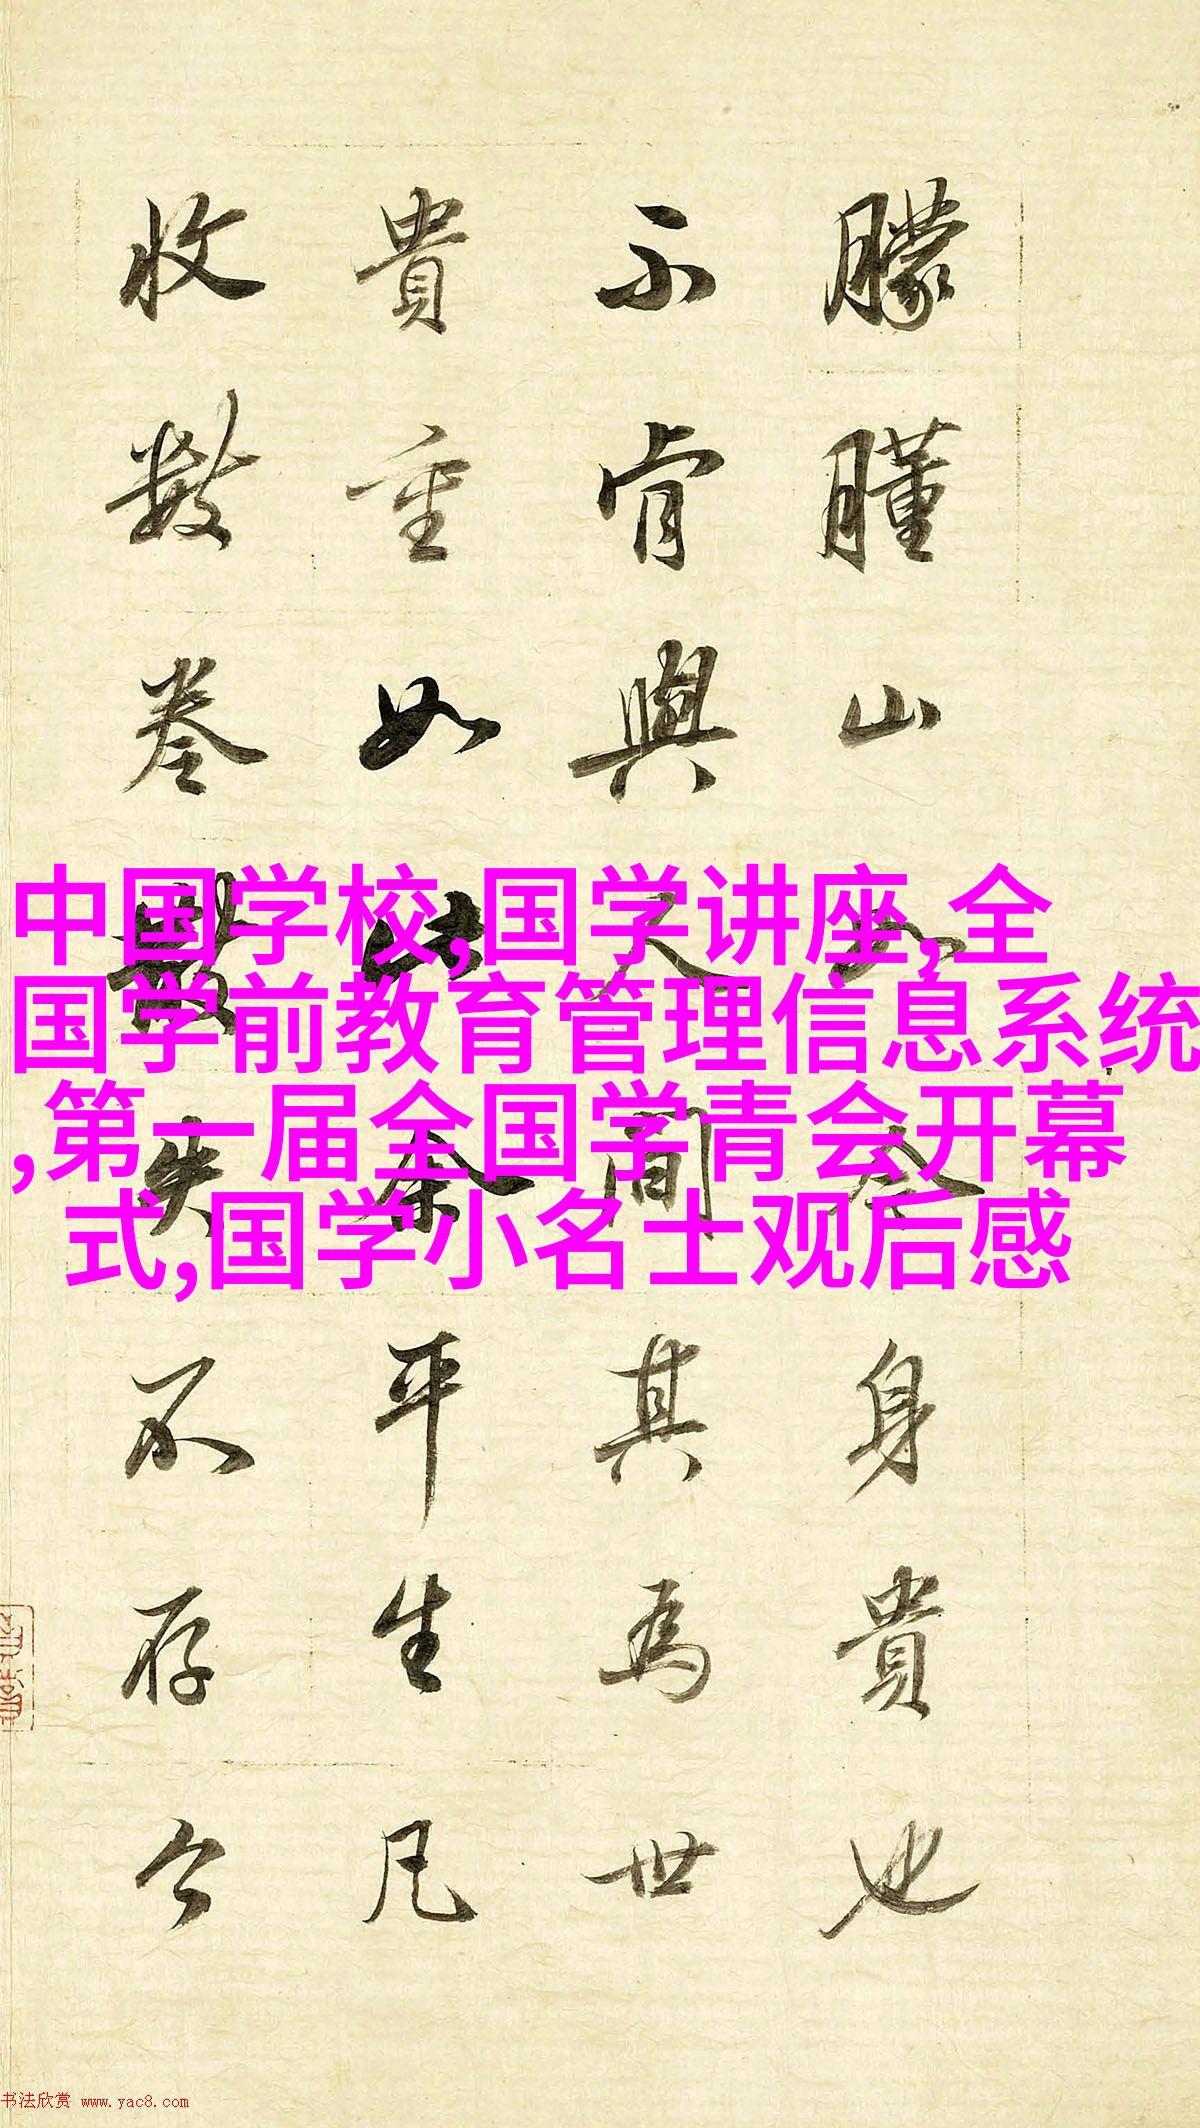 朦朣山身貴也
不肯與人間其為世
貴重如此余平生凡
收數卷失不存今
中国学校,国学讲座,全
国学前教育管理信息系统
,第一届全国学青会开幕
式,国学小名士观后感
书法欣赏 www.yac8.com